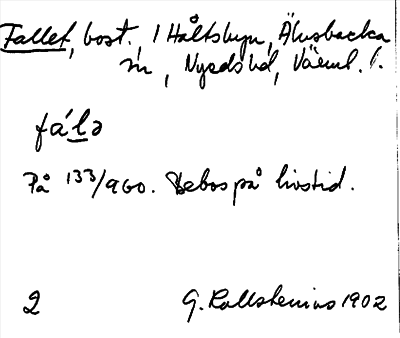 Fallet, bost., i Håltsbyn, Älvsbacka
sn, Nyeds hd, Värml. l.
fálə
På 133/960. Bebos på livstid.
2 G. Kallstenius 1902